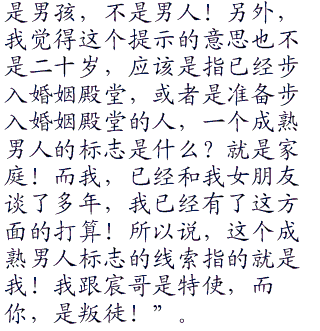 是男孩，不是男人！另外，
我觉得这个提示的意思也不
是二十岁，应该是指已经步
入婚姻殿堂，或者是准备步
入婚姻殿堂的人，一个成熟
男人的标志是什么？就是家
庭！而我，已经和我女朋友
谈了多年，我已经有了这方
面的打算！所以说，这个成
熟男人标志的线索指的就是
我！我跟宸哥是特使，而
你，是叛徒！”。